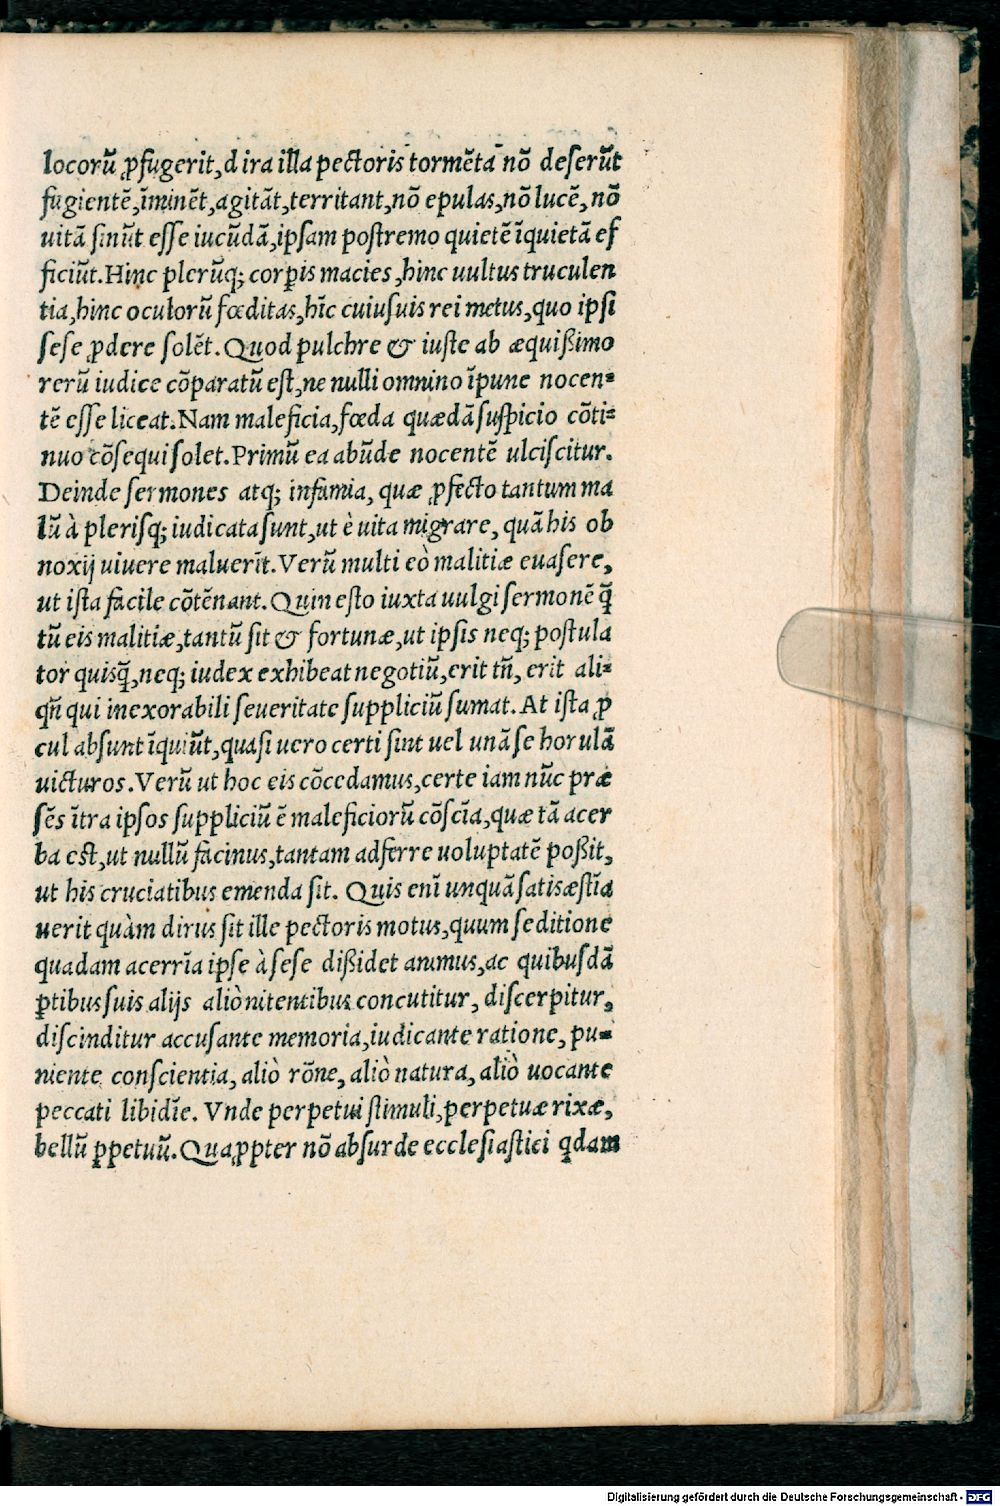 locorũ ꝓfugerit, dira illa pectoris tormẽta nõ deserũt
fugientẽ, ĩminẽt, agitãt, territant, nõ epulas, nõ lucẽ, nõ
uitã sinũt esse iucũdã, ipsam postremo quietẽ ĩquietã ef
ficiũt. Hinc plerũq; corꝑis macies, hinc uultus truculen
tia, hinc oculorũ fœditas, hĩc cuiusuis rei metus, quo ipsi
sese ꝓdere solẽt. Quod pulchre & iuste ab æquißimo
rerũ iudice cõparatũ est, ne nulli omnino ĩpune nocen=
tẽ esse liceat. Nam maleficia, fœda quædã suspicio cõti=
nuo cõsequi solet. Primũ ea abũde nocentẽ ulciscitur.
Deinde sermones atq; infamia, quæ ꝓfecto tantum ma
lũ à plerisq; iudicata sunt, ut è uita migrare, quã his ob
noxij uiuere maluerĩt. Verũ multi eò malitiæ euasere,
ut ista facile cõtẽnant. Quin esto iuxta uulgi sermonẽ q̃
tũ eis malitiæ, tantũ sit & fortunæ, ut ipsis neq; postula
tor quisq̃, neq; iudex exhibeat negotiũ, erit tñ, erit ali=
qñ qui inexorabili seueritate suppliciũ sumat. At ista ꝓ
cul absunt ĩquiũt, quasi uero certi sint uel unã se horulã
uicturos. Verũ ut hoc eis cõcedamus, certe iam nũc præ
sẽs ĩtra ipsos suppliciũ ẽ maleficiorũ cõscĩa, quæ tã acer
ba est, ut nullũ facinus, tantam adferre uoluptatẽ poßit,
ut his cruciatibus emenda sit. Quis enĩ unquã satis æstĩa
uerit quàm dirus sit ille pectoris motus, quum seditione
quadam acerrĩa ipse à sese dißidet animus, ac quibusdã
ꝑtibus suis alijs aliò nitentibus concutitur, discerpitur,
discinditur accusante memoria, iudicante ratione, pu=
niente conscientia, aliò rõne, aliò natura, aliò uocante
peccati libidĩe. Vnde perpetui stimuli, perpetuæ rixæ,
bellũ ꝑpetuũ. Quaꝓpter nõ absurde ecclesiastici qdam
Digitalisierung gefördert durch die Deutsche Forschungsgemeinschaft - DFG